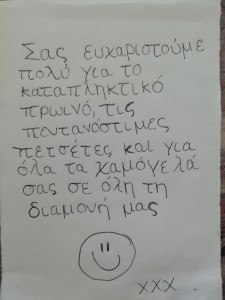 Σας ευχαριστούμε
πολύ για το
καταπληκτικό
πρωινό, τις
πεντανόστιμες
πετσέτες και για
όλα τα χαμόγελά
σας σε όλη τη
διαμονή μας
xxx.